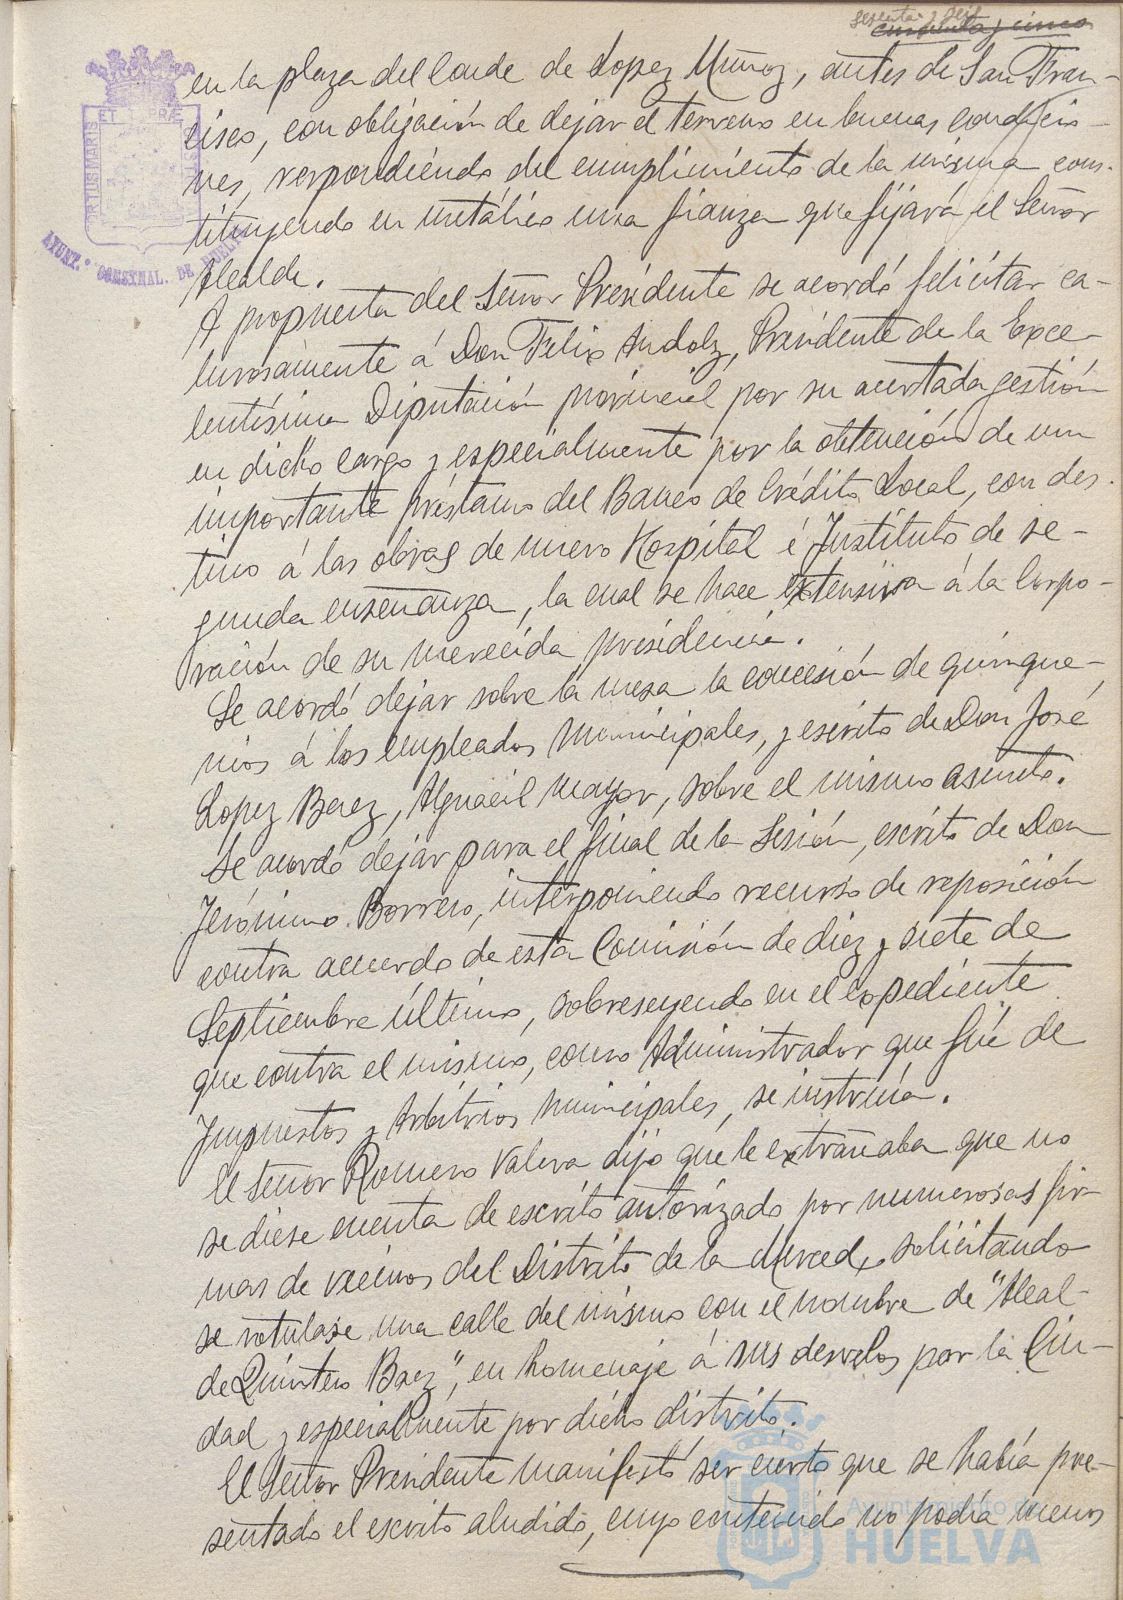 sesenta y seis
cincuenta y cinco
PORTUS MARIS ET TERRÆ CUSTODIA
AYUNT.º CONSTNAL. DE HUELVA
en la plaza del Conde de Lopez Muñoz, antes de San Fran-
cisco, con obligación de dejar el terreno en buenas condicio-
nes, respondiendo del cumplimiento de la misma cons-
tituyendo en metálico una fianza que fijará el Señor
Alcalde.
A propuesta del Señor Presidente se acordó felicitar ca-
lurosamente á Don Felix Andolz, Presidente de la Exce-
lentísima Diputación provincial por su acertada gestión
en dicho cargo y especialmente por la obtención de un
importante préstamo del Banco de Crédito Local, con des-
tino á las obras de nuevo Hospital é Instituto de se-
gunda enseñanza, la cual se hace extensiva á la Corpo-
ración de su merecida presidencia.
Se acordó dejar sobre la mesa la concesión de quinque-
nios á los empleados municipales, y escrito de Don José
Lopez Baez, Alguacil mayor, sobre el mismo asunto.
Se acordó dejar para el final de la Sesión, escrito de Don
Jerónimo Borrero, interponiendo recurso de reposición
contra acuerdo de esta Comisión de diez y siete de
Septiembre último, sobreseyendo en el expediente
que contra el mismo, como Administrador que fué de
Impuestos y Arbitrios municipales, se instruía.
El Señor Romero Valera dijo que le extrañaba que no
se diese cuenta de escrito autorizado por numerosas fir-
mas de vecinos del Distrito de la Merced, solicitando
se rotulase una calle del mismo con el nombre de "Alcal-
de Quintero Baez", en homenaje á sus desvelos por la Ciu-
dad y especialmente por dicho distrito.
El Señor Presidente manifestó ser cierto que se había pre-
sentado el escrito aludido, cuyo contenido no podía menos
Ayuntamiento de
HUELVA